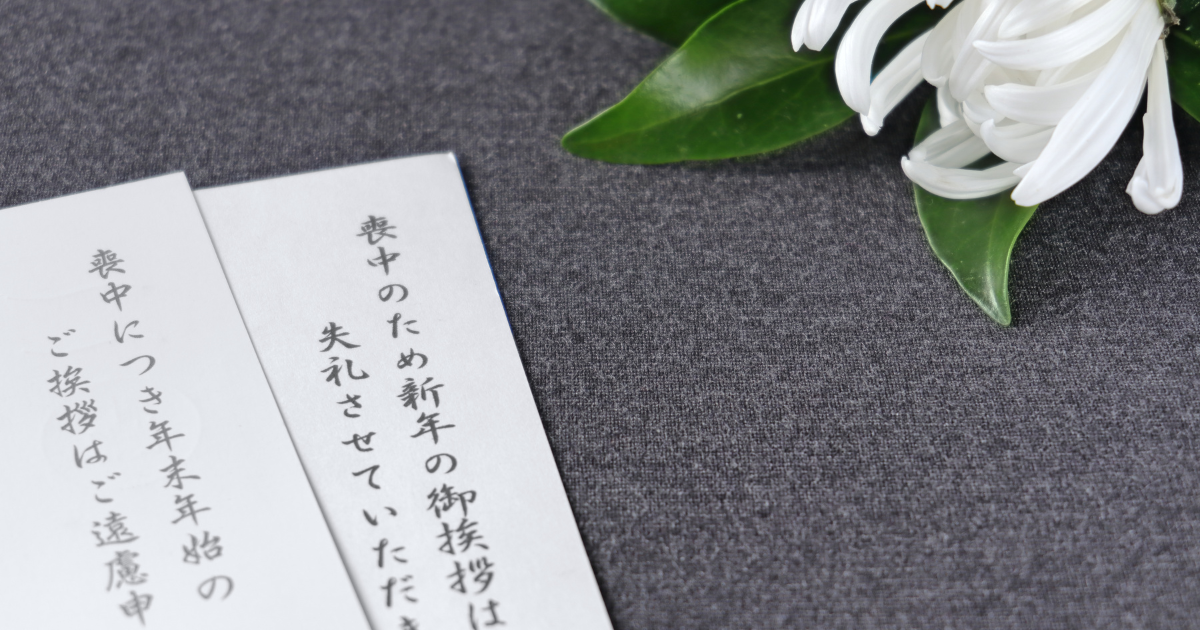 喪中のため新年の御挨拶は
失礼させていただき
喪中につき年末年始の
ご挨拶はご遠慮申